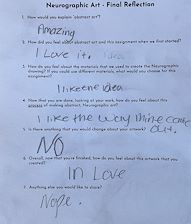 Neurographic Art - Final Reflection
1. How would you explain "abstract art"?
Amazing
2. How did you feel about abstract art and this assignment when we first started?
I Love it.
3. How do you feel about the materials that we used to create the Neurographic
drawing? If you could use different materials, what would you choose for this
assignment?
I like the idea
4. Now that you are done, looking at your work, how do you feel about this
process of making abstract, Neurographic art?
I like the way mine came
out.
5. Is there anything that you would change about your artwork?
NO
6. Overall, now that you're finished, how do you feel about this artwork that you
created?
in Love
7. Anything else you would like to share?
Nope.